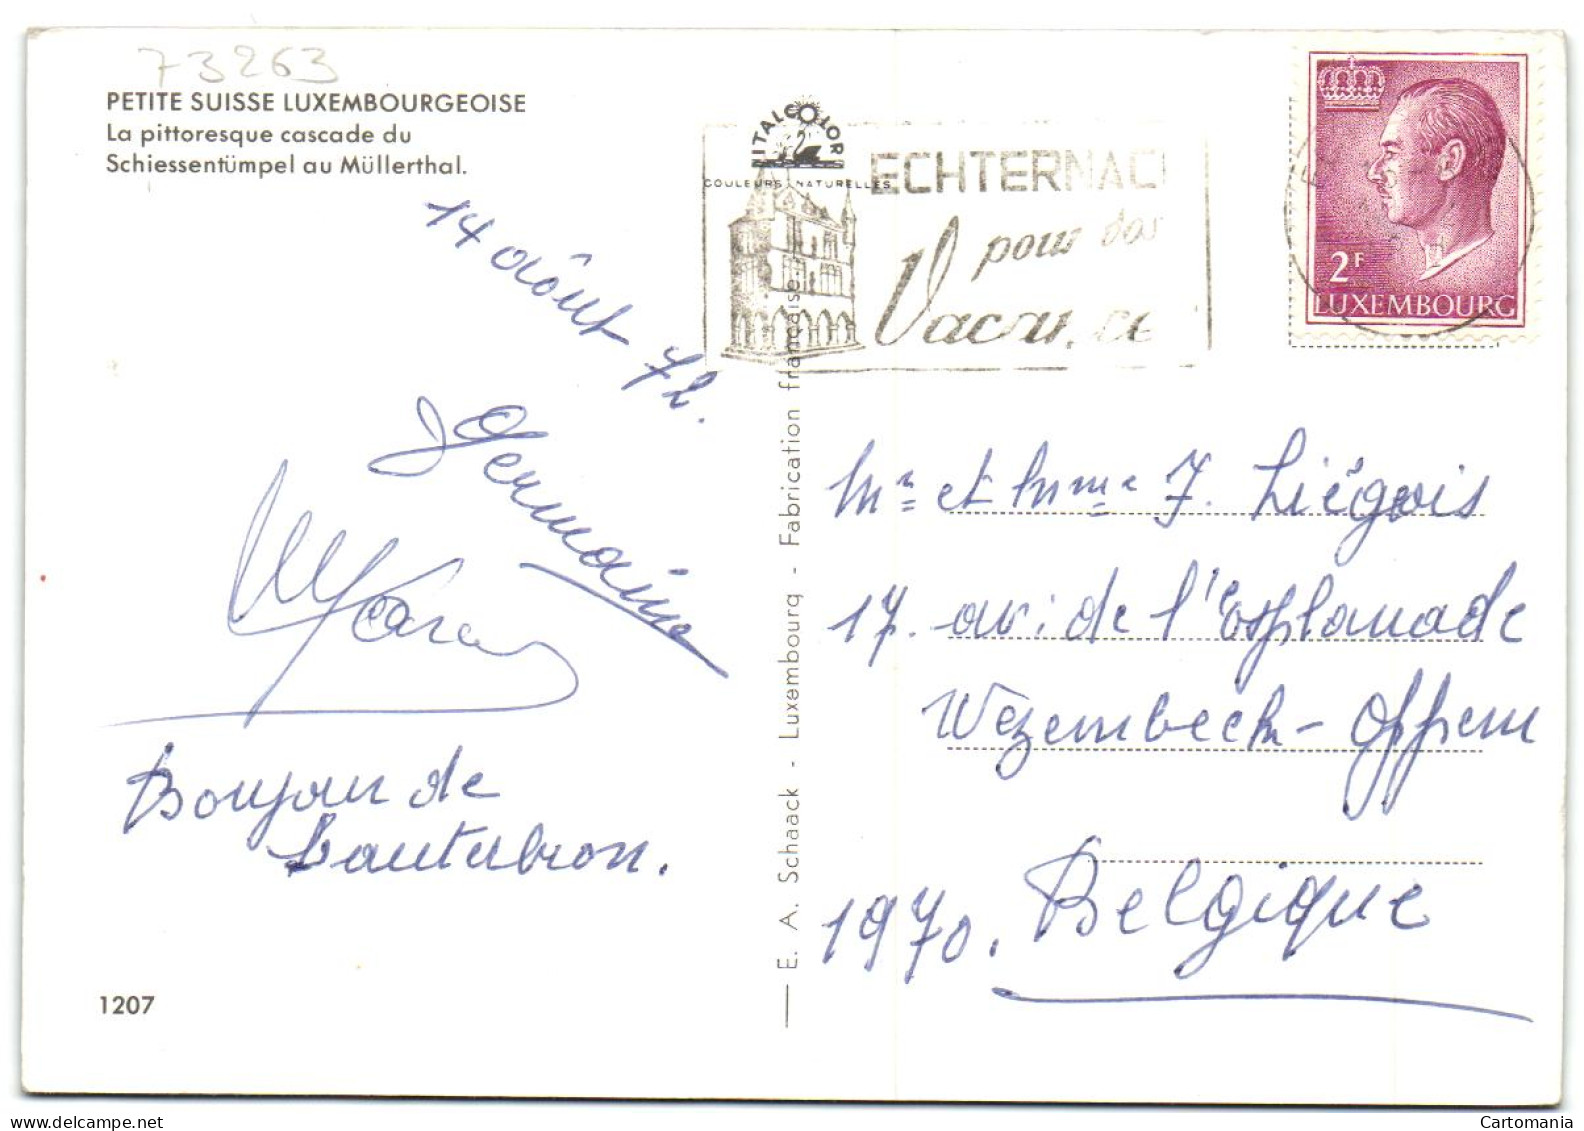 73263
PETITE SUISSE LUXEMBOURGEOISE
La pittoresque cascade du
Schiessentümpel au Müllerthal.
ITALCOLOR
COULEURS NATURELLES
ECHTERNAC
pour
2F
LUXEMBOURG
14 août 72.
Germaine
Bonjour de
Lauterbron.
1207
E. A. Schaack - Luxembourg - Fabrication française
Mr et Mme J. Liégeois
17. av. de l'Esplanade
Wezembeek-Oppem
1970. Belgique
Cartomania